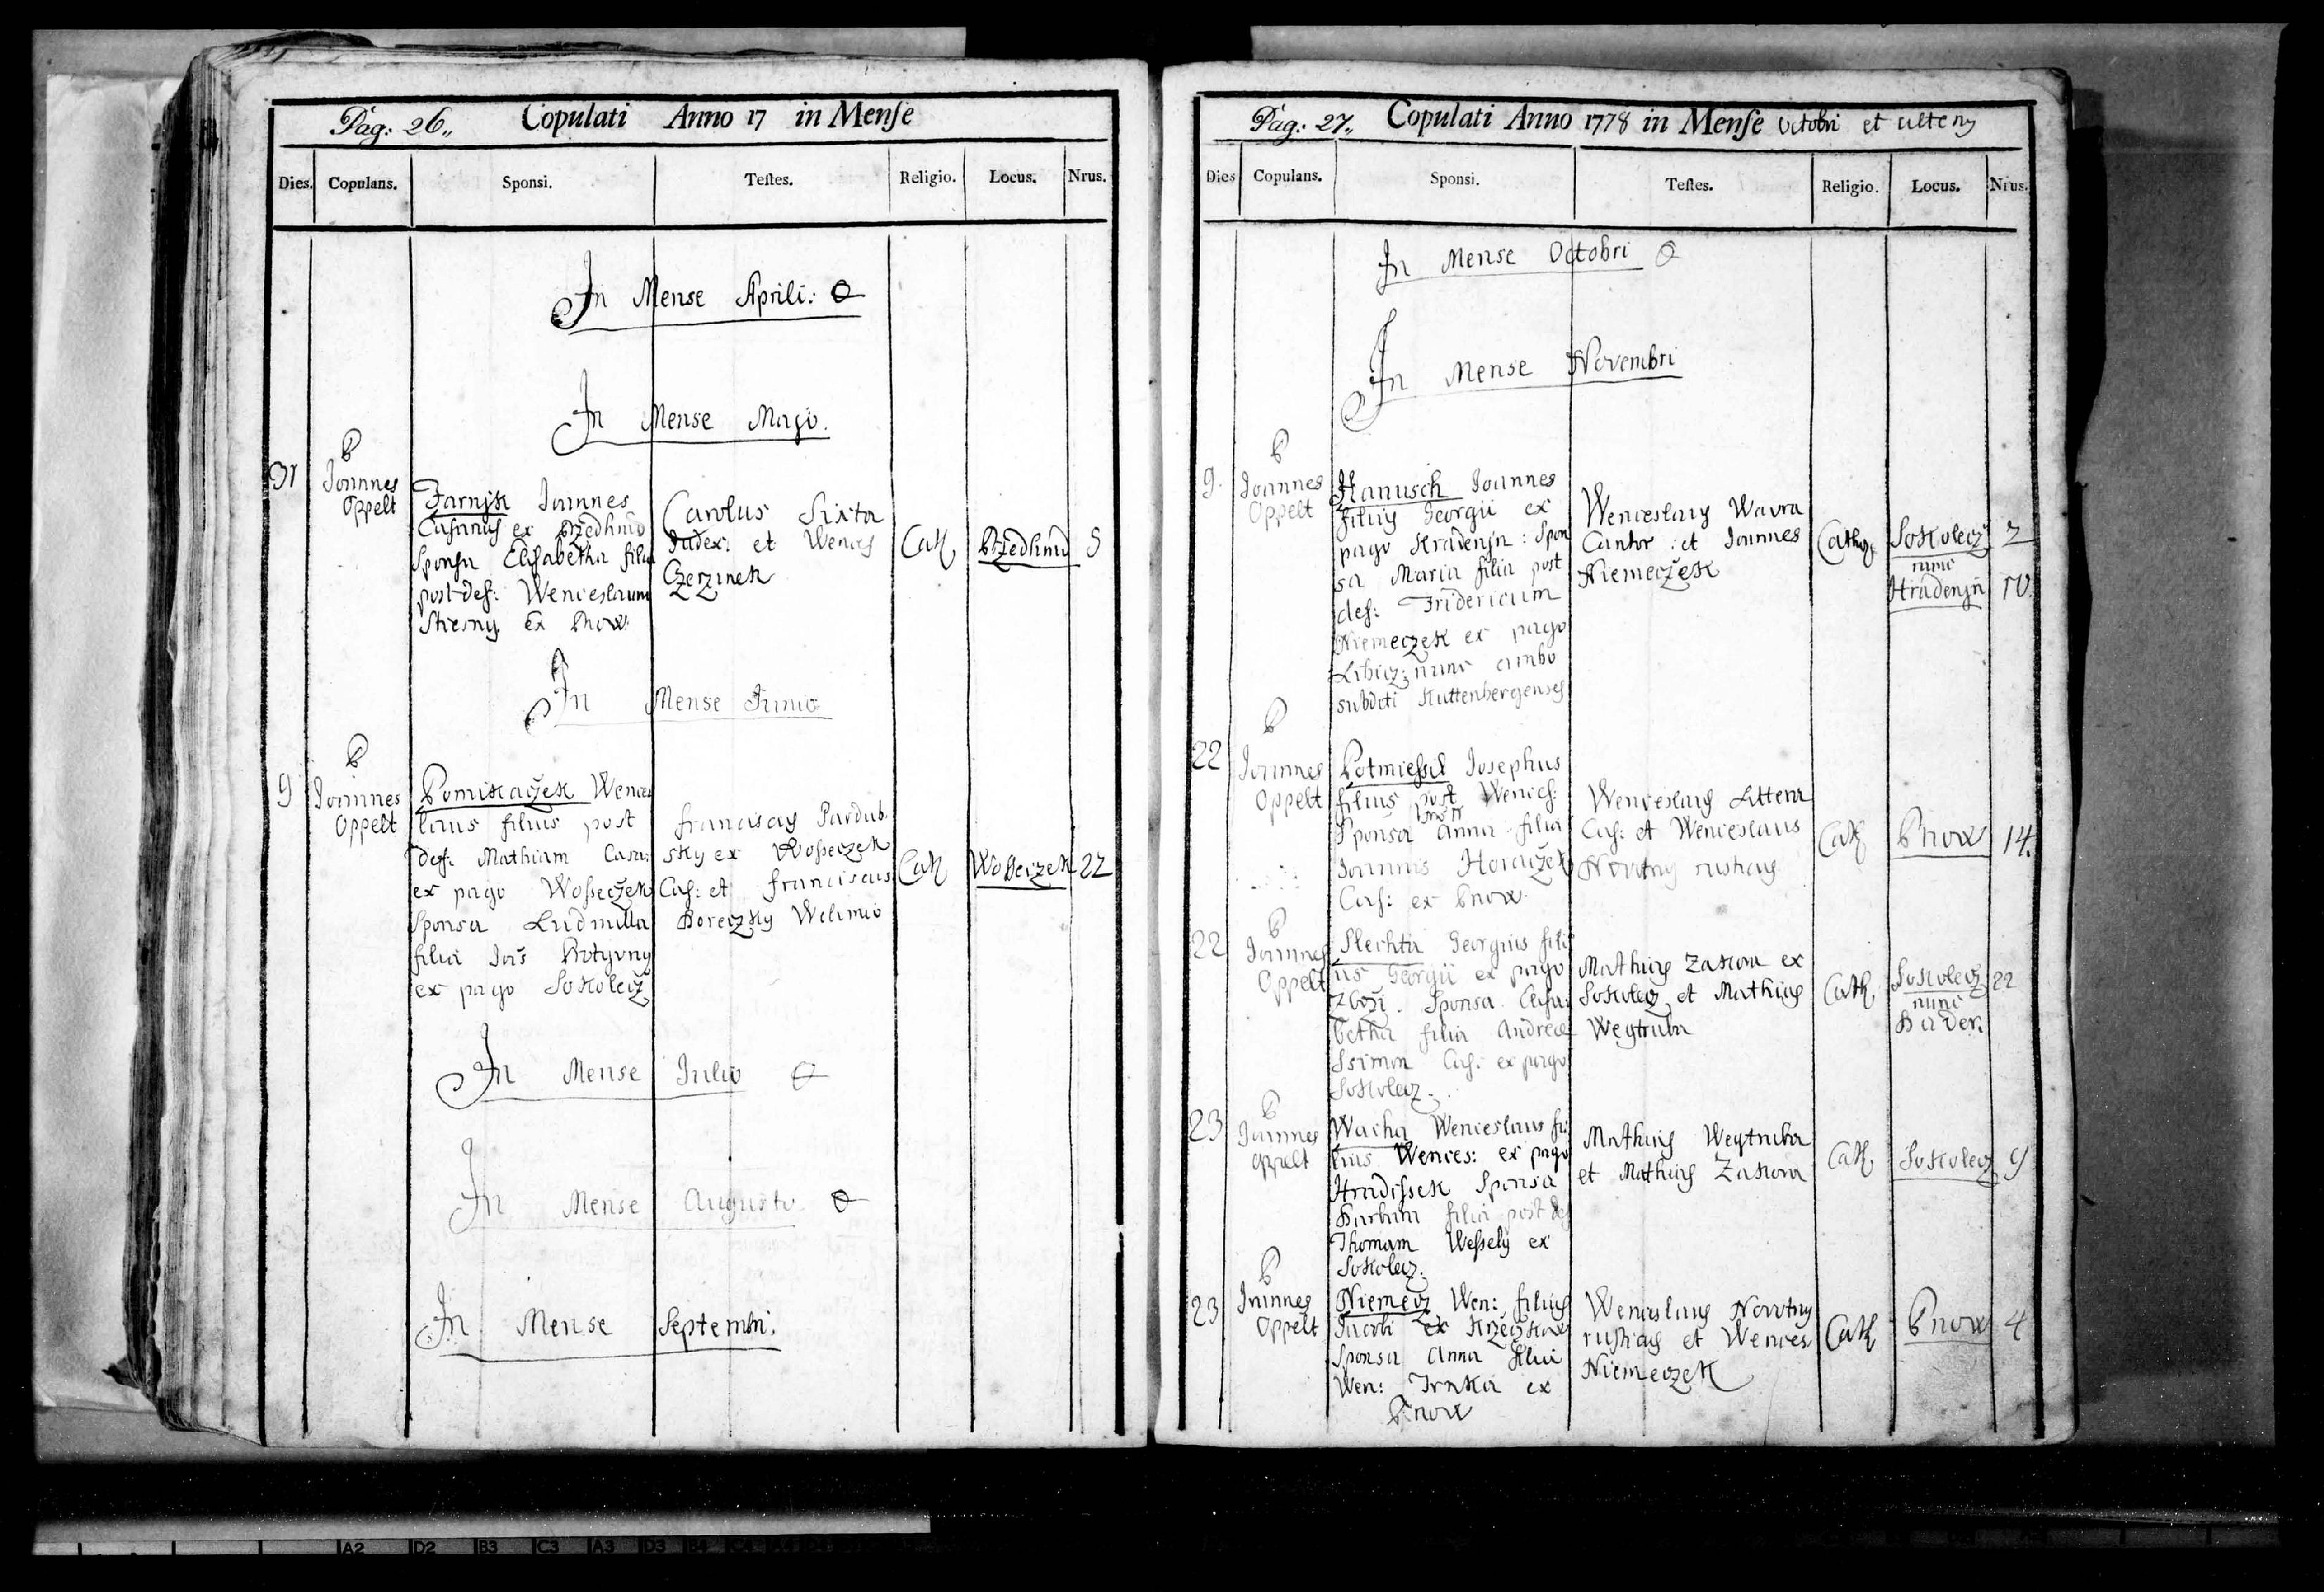 Pag: 26,, Copulati Anno 17 in Mense
Dies. Copulans. Sponsi. Testes. Religio. Locus. Nrus.
In Mense Aprili: O
In Mense Majo.
31
P
Joannes
Oppelt
Joannes
Casarius ex Przedhrad
Sponsa Elisabetha filia
post def: Wenceslaum
Stiesny ex Pnow
Carolus Sixta
Judex: et Wences
Czerzinek
Cath
Przedhrad
5
In Mense Junio
9
P
Joannes
Oppelt
Pomikaczek Wences
laus filius post
def: Mathiam Casa:
ex pago Wosseczek
Sponsa Ludmilla
filia Jois
ex pago Sokolecz
Franciscus Pardub.
sky ex Wosseczek
Cas: et Franciscus
Boreczky Welimio
Cath
Wosseczek
22
In Mense Julio O
In Mense Augusto O
In Mense Septembri.
Pag: 27,, Copulati Anno 1778 in Mense Octobri et
Dies Copulans. Sponsi. Testes. Religio. Locus. Nrus.
In Mense Octobri O
In Mense Novembri
9.
P
Joannes
Oppelt
Hanusch Joannes
filius Georgii ex
pago Hradenjn: Spon
sa Maria filia post
def: Fridericum
Niemeczek ex pago
Libicz: nunc ambo
subditi Kuttenbergenses
Wenceslaus Wavra
Cantor: et Joannes
Niemeczek
Cathol
Sokolecz
nunc
Hradenjn
2
10.
22
P
Joannes
Oppelt
Potmiessil Josephus
filius post Wences:
Sponsa Anna filia
Joannis Horaczek
Cas: ex Pnow.
Wenceslaus Littera
Cas: et Wenceslaus
Novotny rusticus
Cath
Pnow
14.
22
P
Joannes
Oppelt
Slechta Georgius fili
us Georgii ex pago
Zbozi. Sponsa Elisa
betha filia Andreae
Ssimon Cas: ex pago
Sokolecz.
Mathias Zaskora ex
Sokolecz et Mathias
Weytruba
Cath
Sokolecz
nunc
22
23
P
Joannes
Oppelt
Wacha Wenceslaus fi
lius Wences: ex pago
Hradissek Sponsa
Barbara filia post def
Thomam Wessely ex
Sokolecz.
Mathias Weytruba
et Mathias Zaskora
Cath
Sokolecz
9
23
P
Joannes
Oppelt
Niemecz Wen: filius
Jacobi ex Krzeczkow
Sponsa Anna filia
Wen: Trnka ex
Pnow
Wenceslaus Novotny
rusticus et Wences
Niemeczek
Cath
Pnow
4
A2 D2 B3 C3 A3 D3 B4 C4